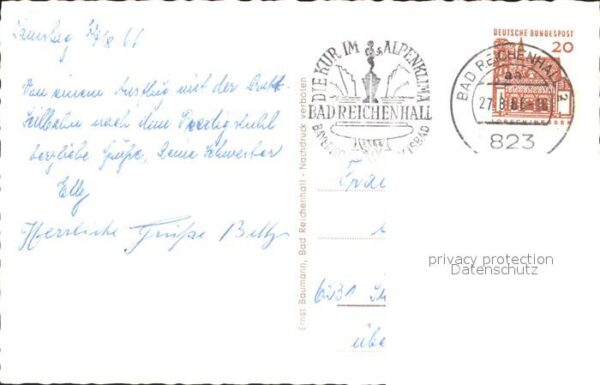 Samstag 27/8 66
Von einem Ausflug mit der Draht-
seilbahn nach dem Predigtstuhl
herzliche Grüße, Deine Schwester
Elly
Herzliche Grüße Betty
Ernst Baumann, Bad Reichenhall - Nachdruck verboten
DIE KUR IM ALPENKLIMA
BAD REICHENHALL
DEUTSCHE BUNDESPOST
20
BAD REICHENHALL
27.8.66
823
privacy protection
Datenschutz
6231
übe